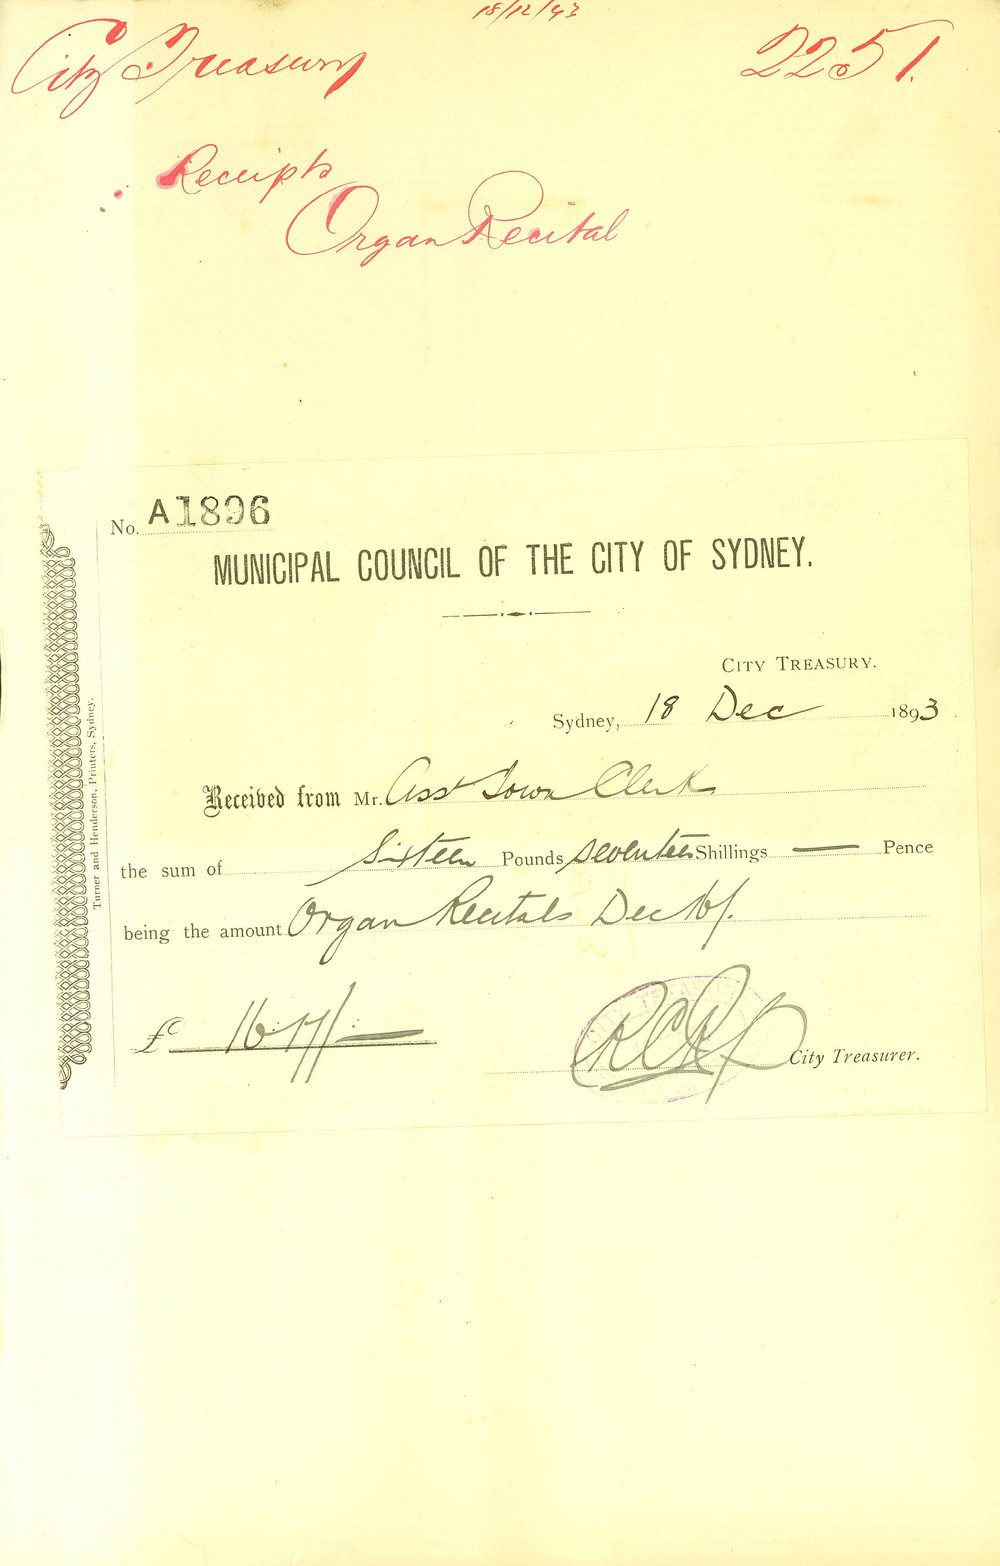 18/12/93
City Treasury
2251.
Receipts
Organ Recital
No. A1896
MUNICIPAL COUNCIL OF THE CITY OF SYDNEY.
CITY TREASURY.
Sydney, 18 Dec 1893
Received from Mr. Asst Town Clerk
the sum of Sixteen Pounds seventeen Shillings — Pence
being the amount Organ Recitals Dec 16/.
£ 16:17/:—
City Treasurer.
Turner and Henderson, Printers, Sydney.